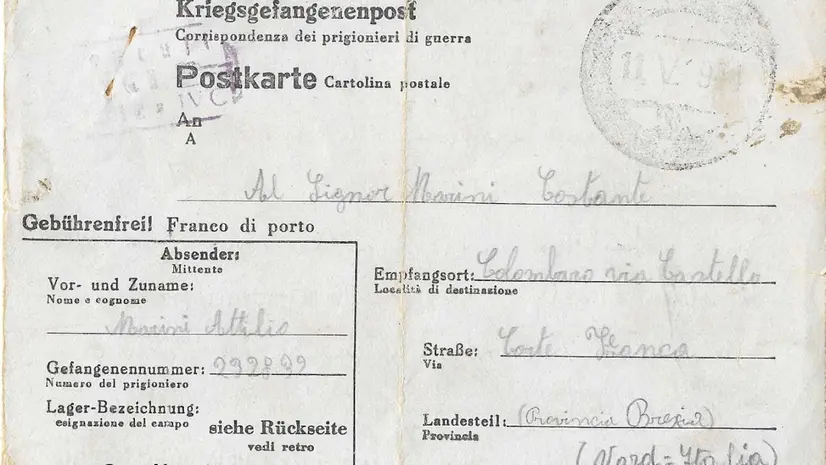 Kriegsgefangenenpost
Corrispondenza dei prigionieri di guerra
Postkarte Cartolina postale
An
A
Al Signor Marini Costante
Gebührenfrei! Franco di porto
Absender:
Mittente
Vor- und Zuname:
Nome e cognome
Marini Attilio
Gefangenennummer: 232899
Numero del prigioniero
Lager-Bezeichnung:
esignazione del campo
siehe Rückseite
vedi retro
Empfangsort: Colombaro via Castello
Località di destinazione
Straße: Corte Franca
Via
Landesteil: (Provincia Brescia)
Provincia
(Nord=Italia)